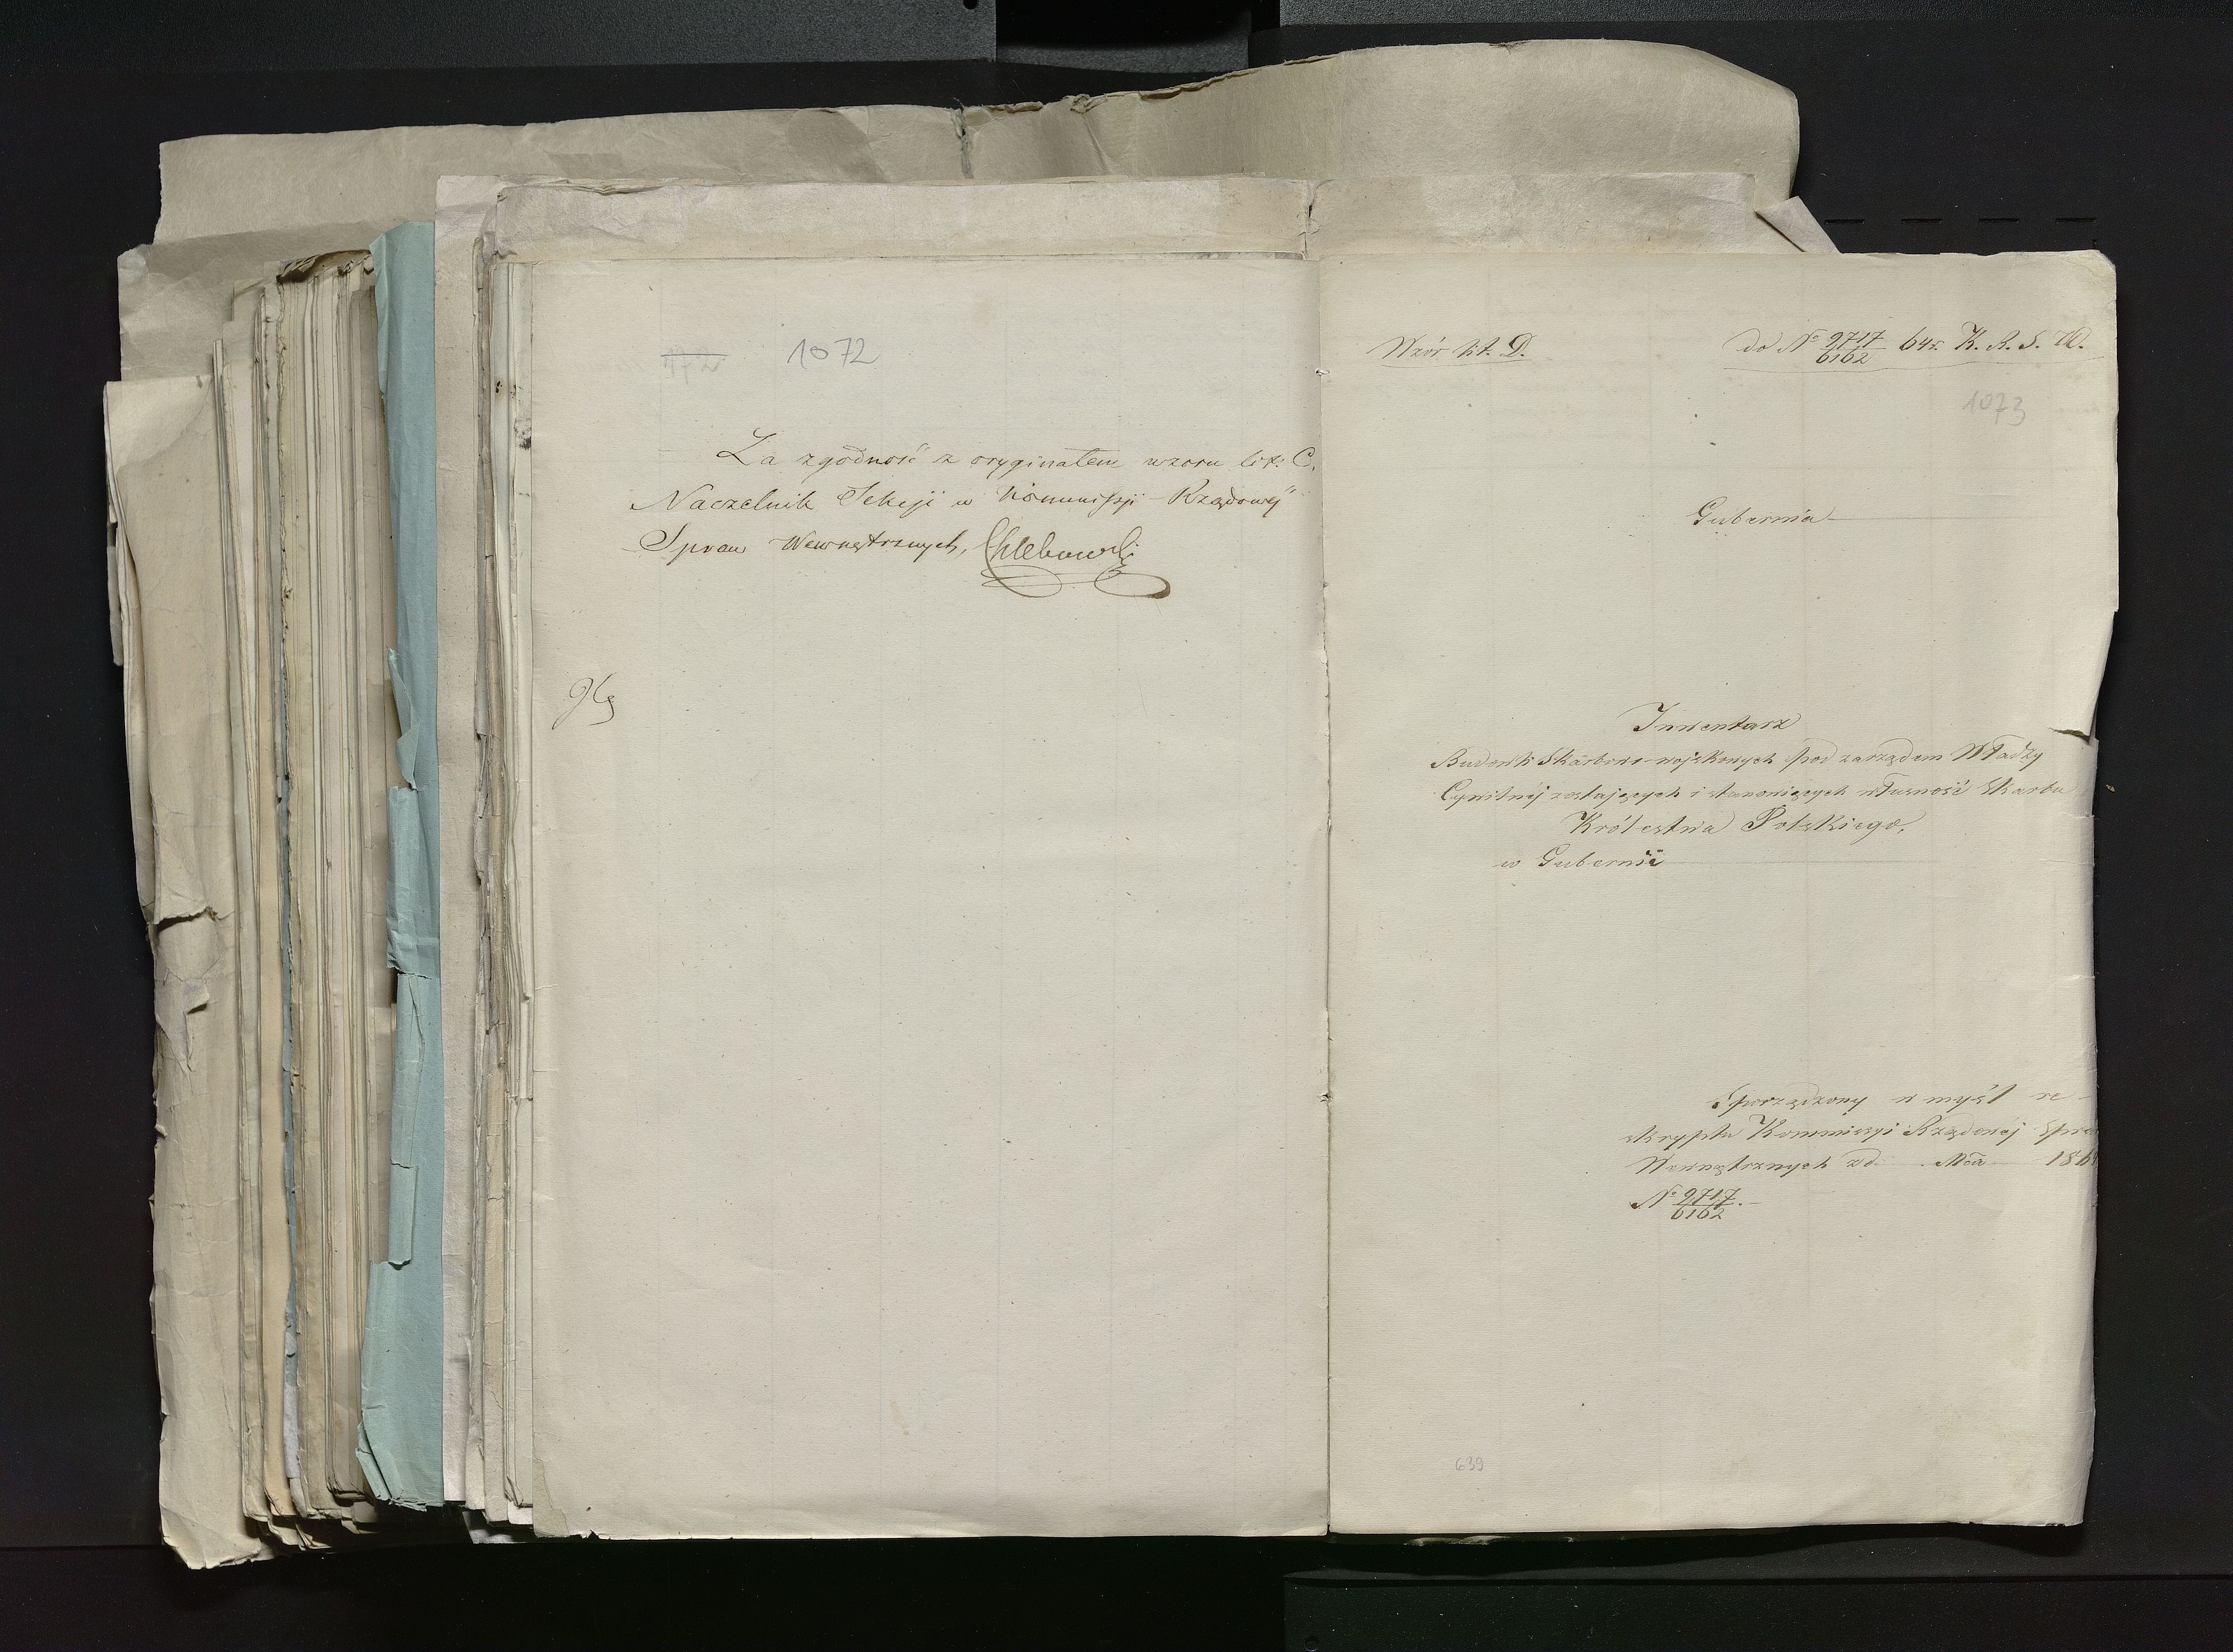 1072
Za zgodność z oryginałem wzoru lit: C.
Naczelnik Sekcji w Kommissji Rządowéj
Spraw Wewnętrznych, Chlebowski
Wzór lit. D.
do № 9717/6162 64r. K. R. S. W.
1073
Gubernia
Inwentarz
Budowli Skarbowo-wojskowych pod zarządem Władzy
Cywilnéj zostających i stanowiących własność Skarbu
Królestwa Polskiego,
w Gubernii
Sporządzony w myśl re-
skryptu Kommissyi Rządowéj Spra
Wewnętrznych z d. Mca 186
№ 9717/6162.
639